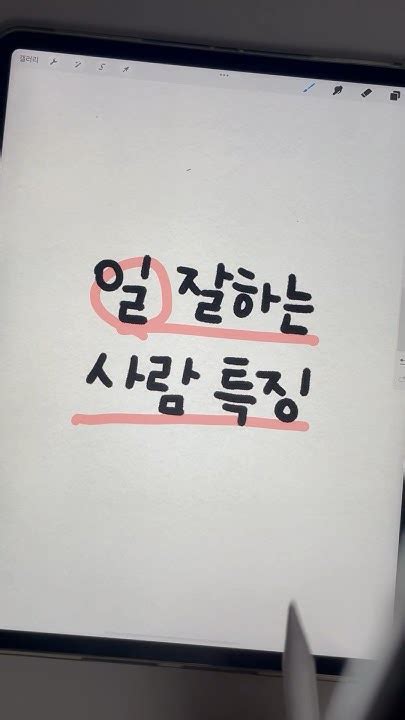 갤러리
일 잘하는
사람 특징